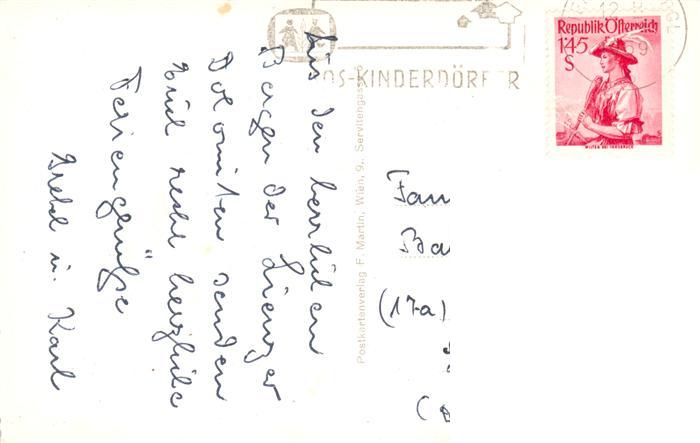 Aus den herrlichen
Bergen der Lienzer
Dolomiten senden
Euch recht herzliche
Feriengrüße
Gretel u. Karl
Postkartenverlag F. Martin, Wien, 9., Servitengasse 6
OS-KINDERDÖRFER
Republik Österreich
1'45
S
WILTEN BEI INNSBRUCK
12
59
Fam
Ba
(17a)
(